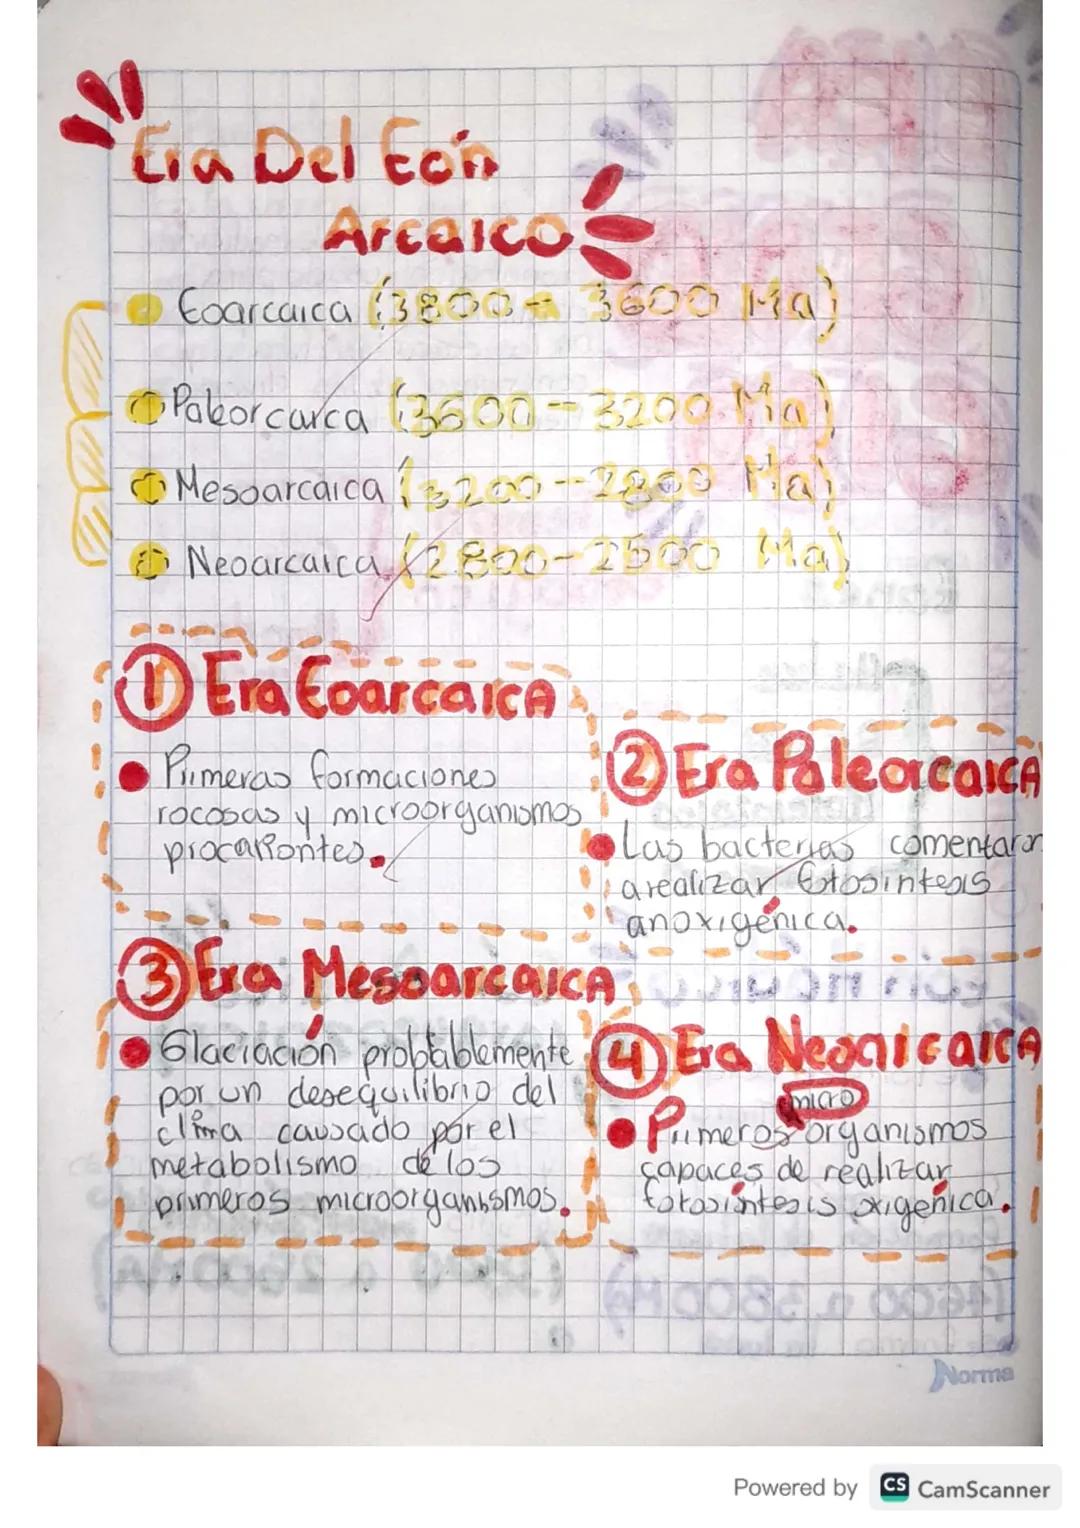 Era Del Eón
Arcaico
Eoarcaica (3800 - 3600 Ma)
Paleorcaica (3600 - 3200 Ma)
Mesoarcaica (3200 - 2800 Ma)
Neoarcaica (2800 - 2500 Ma)
① Era Eoarcaica
Primeras formaciones
rocosas y microorganismos
procariontes.
② Era Paleorcaica
Las bacterias comentaron
a realizar fotosintesis
anoxigénica.
③ Era Mesoarcaica
Glaciación probtablemente
por un desequilibrio del
clima causado por el
metabolismo de los
primeros microorganismos.
④ Era Neoarcaica
micro
Primeros organismos
capaces de realizar
fotosíntesis oxigénica.
Norma
Powered by CS CamScanner